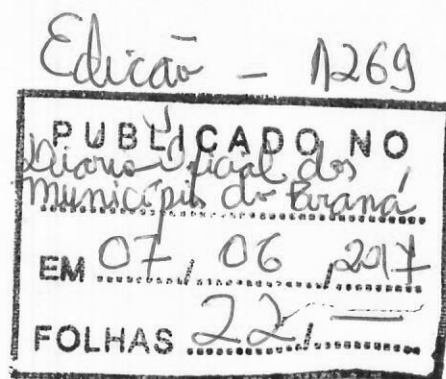 Edição - 1269
PUBLICADO NO
Diario Oficial dos
Municípios do Paraná
EM 07 / 06 / 2017
FOLHAS 22 / —